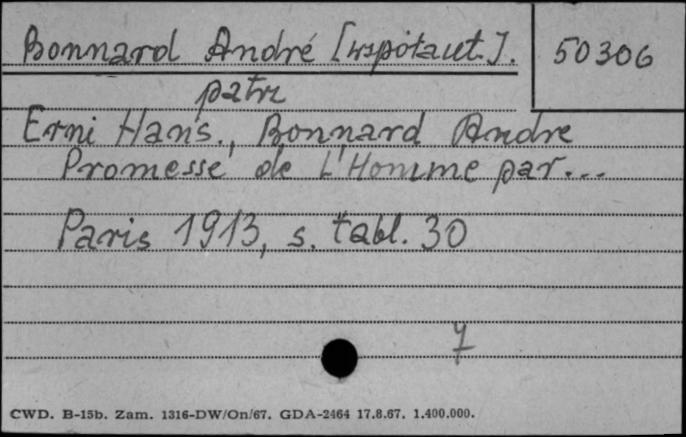 Bonnard André [współaut.].
50306
patrz
Erni Hans., Bonnard Andre
Promesse de L'Homme par...
Paris 1913, s. tabl. 30
7
CWD. B-15b. Zam. 1316-DW/On/67. GDA-2464 17.8.67. 1.400.000.